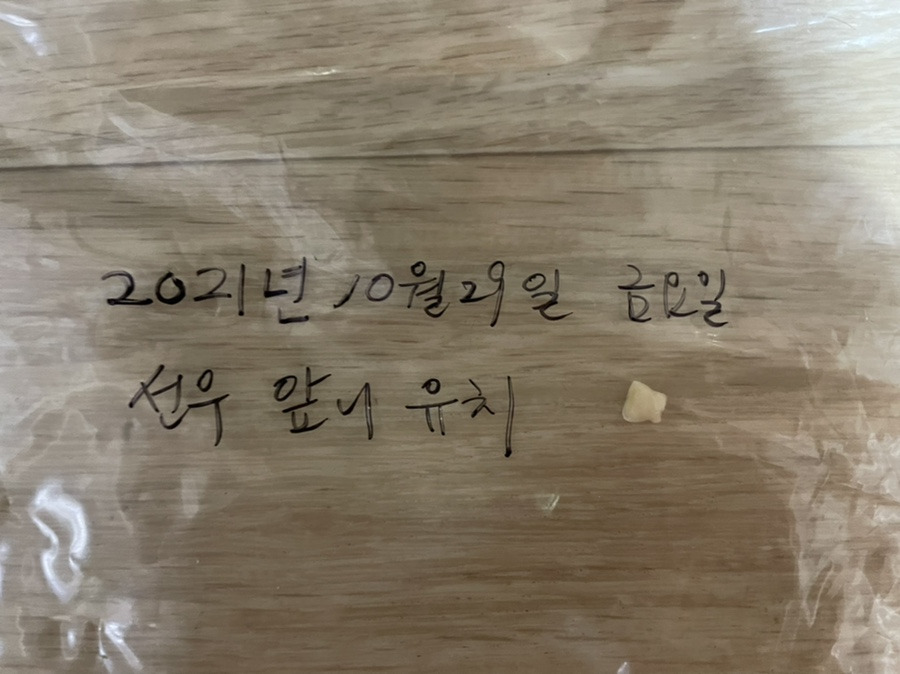 2021년 10월 29일 금요일
선우 앞니 유치